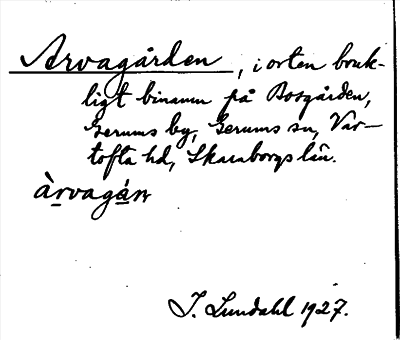 Arvagården, i orten bruk-
ligt binamn på Bosgården,
Gerums by, Gerums sn, Var-
tofta hd, Skaraborgs län.
àrvagán
I. Lundahl 1927.